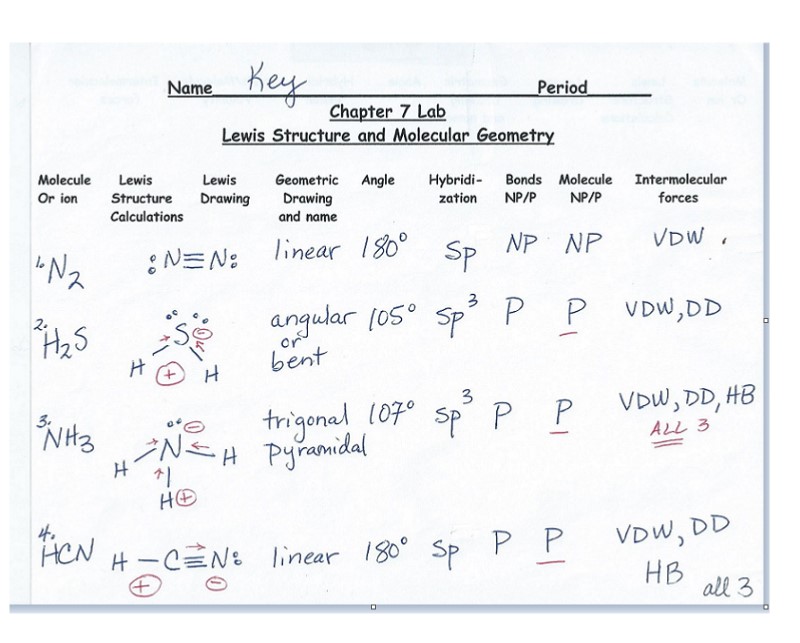 Name Key Period
Chapter 7 Lab
Lewis Structure and Molecular Geometry
Molecule Or ion Lewis Structure Calculations Lewis Drawing Geometric Drawing and name Angle Hybridi-zation Bonds NP/P Molecule NP/P Intermolecular forces
1. N2 :N≡N: linear 180° sp NP NP VDW.
2. H2S S ⊖ H ⊕ H angular or bent 105° sp3 P P VDW, DD
3. NH3 ⊖ H N H H⊕ trigonal pyramidal 107° sp3 P P VDW, DD, HB
ALL 3
4. HCN H–C≡N: ⊕ ⊖ linear 180° sp P P VDW, DD
HB all 3